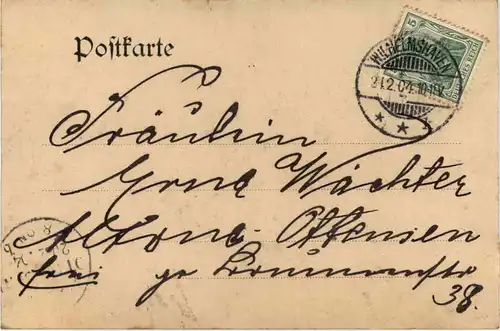 Postkarte
5
WILHELMSHAVEN
21.2.04.10-11V.
* *
Fräulein
Erna Wächter
Altona-Ottensen
frei gr Brunnenstr
38.